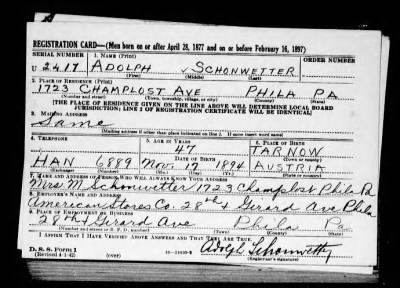 REGISTRATION CARD—(Men born on or after April 28, 1877 and on or before February 16, 1897)
SERIAL NUMBER 1. NAME (Print) ORDER NUMBER
U 2417 ADOLPH SCHONWETTER
(First) (Middle) (Last)
2. PLACE OF RESIDENCE (Print)
1723 CHAMPLOST AVE PHILA PA
(Number and street) (Town, township, village, or city) (County) (State)
[THE PLACE OF RESIDENCE GIVEN ON THE LINE ABOVE WILL DETERMINE LOCAL BOARD
JURISDICTION; LINE 2 OF REGISTRATION CERTIFICATE WILL BE IDENTICAL]
3. MAILING ADDRESS
Same
[Mailing address if other than place indicated on line 2. If same insert word same]
4. TELEPHONE 5. AGE IN YEARS 6. PLACE OF BIRTH
47 TARNOW
DATE OF BIRTH (Town or county)
HAN 6889 Nov. 19 1894 AUSTRIA
(Exchange) (Number) (Mo.) (Day) (Yr.) (State or country)
7. NAME AND ADDRESS OF PERSON WHO WILL ALWAYS KNOW YOUR ADDRESS
Mrs. M. Schonwetter 1723 Champlost Phila Pa
8. EMPLOYER'S NAME AND ADDRESS
American Stores Co. 28th & Girard Ave Phila
9. PLACE OF EMPLOYMENT OR BUSINESS
28th & Girard Ave Phila Pa
(Number and street or R. F. D. number) (Town) (County) (State)
I AFFIRM THAT I HAVE VERIFIED ABOVE ANSWERS AND THAT THEY ARE TRUE.
D. S. S. Form 1 Adolph Schonwetter
(Revised 4-1-42) (over) (Registrant's signature)